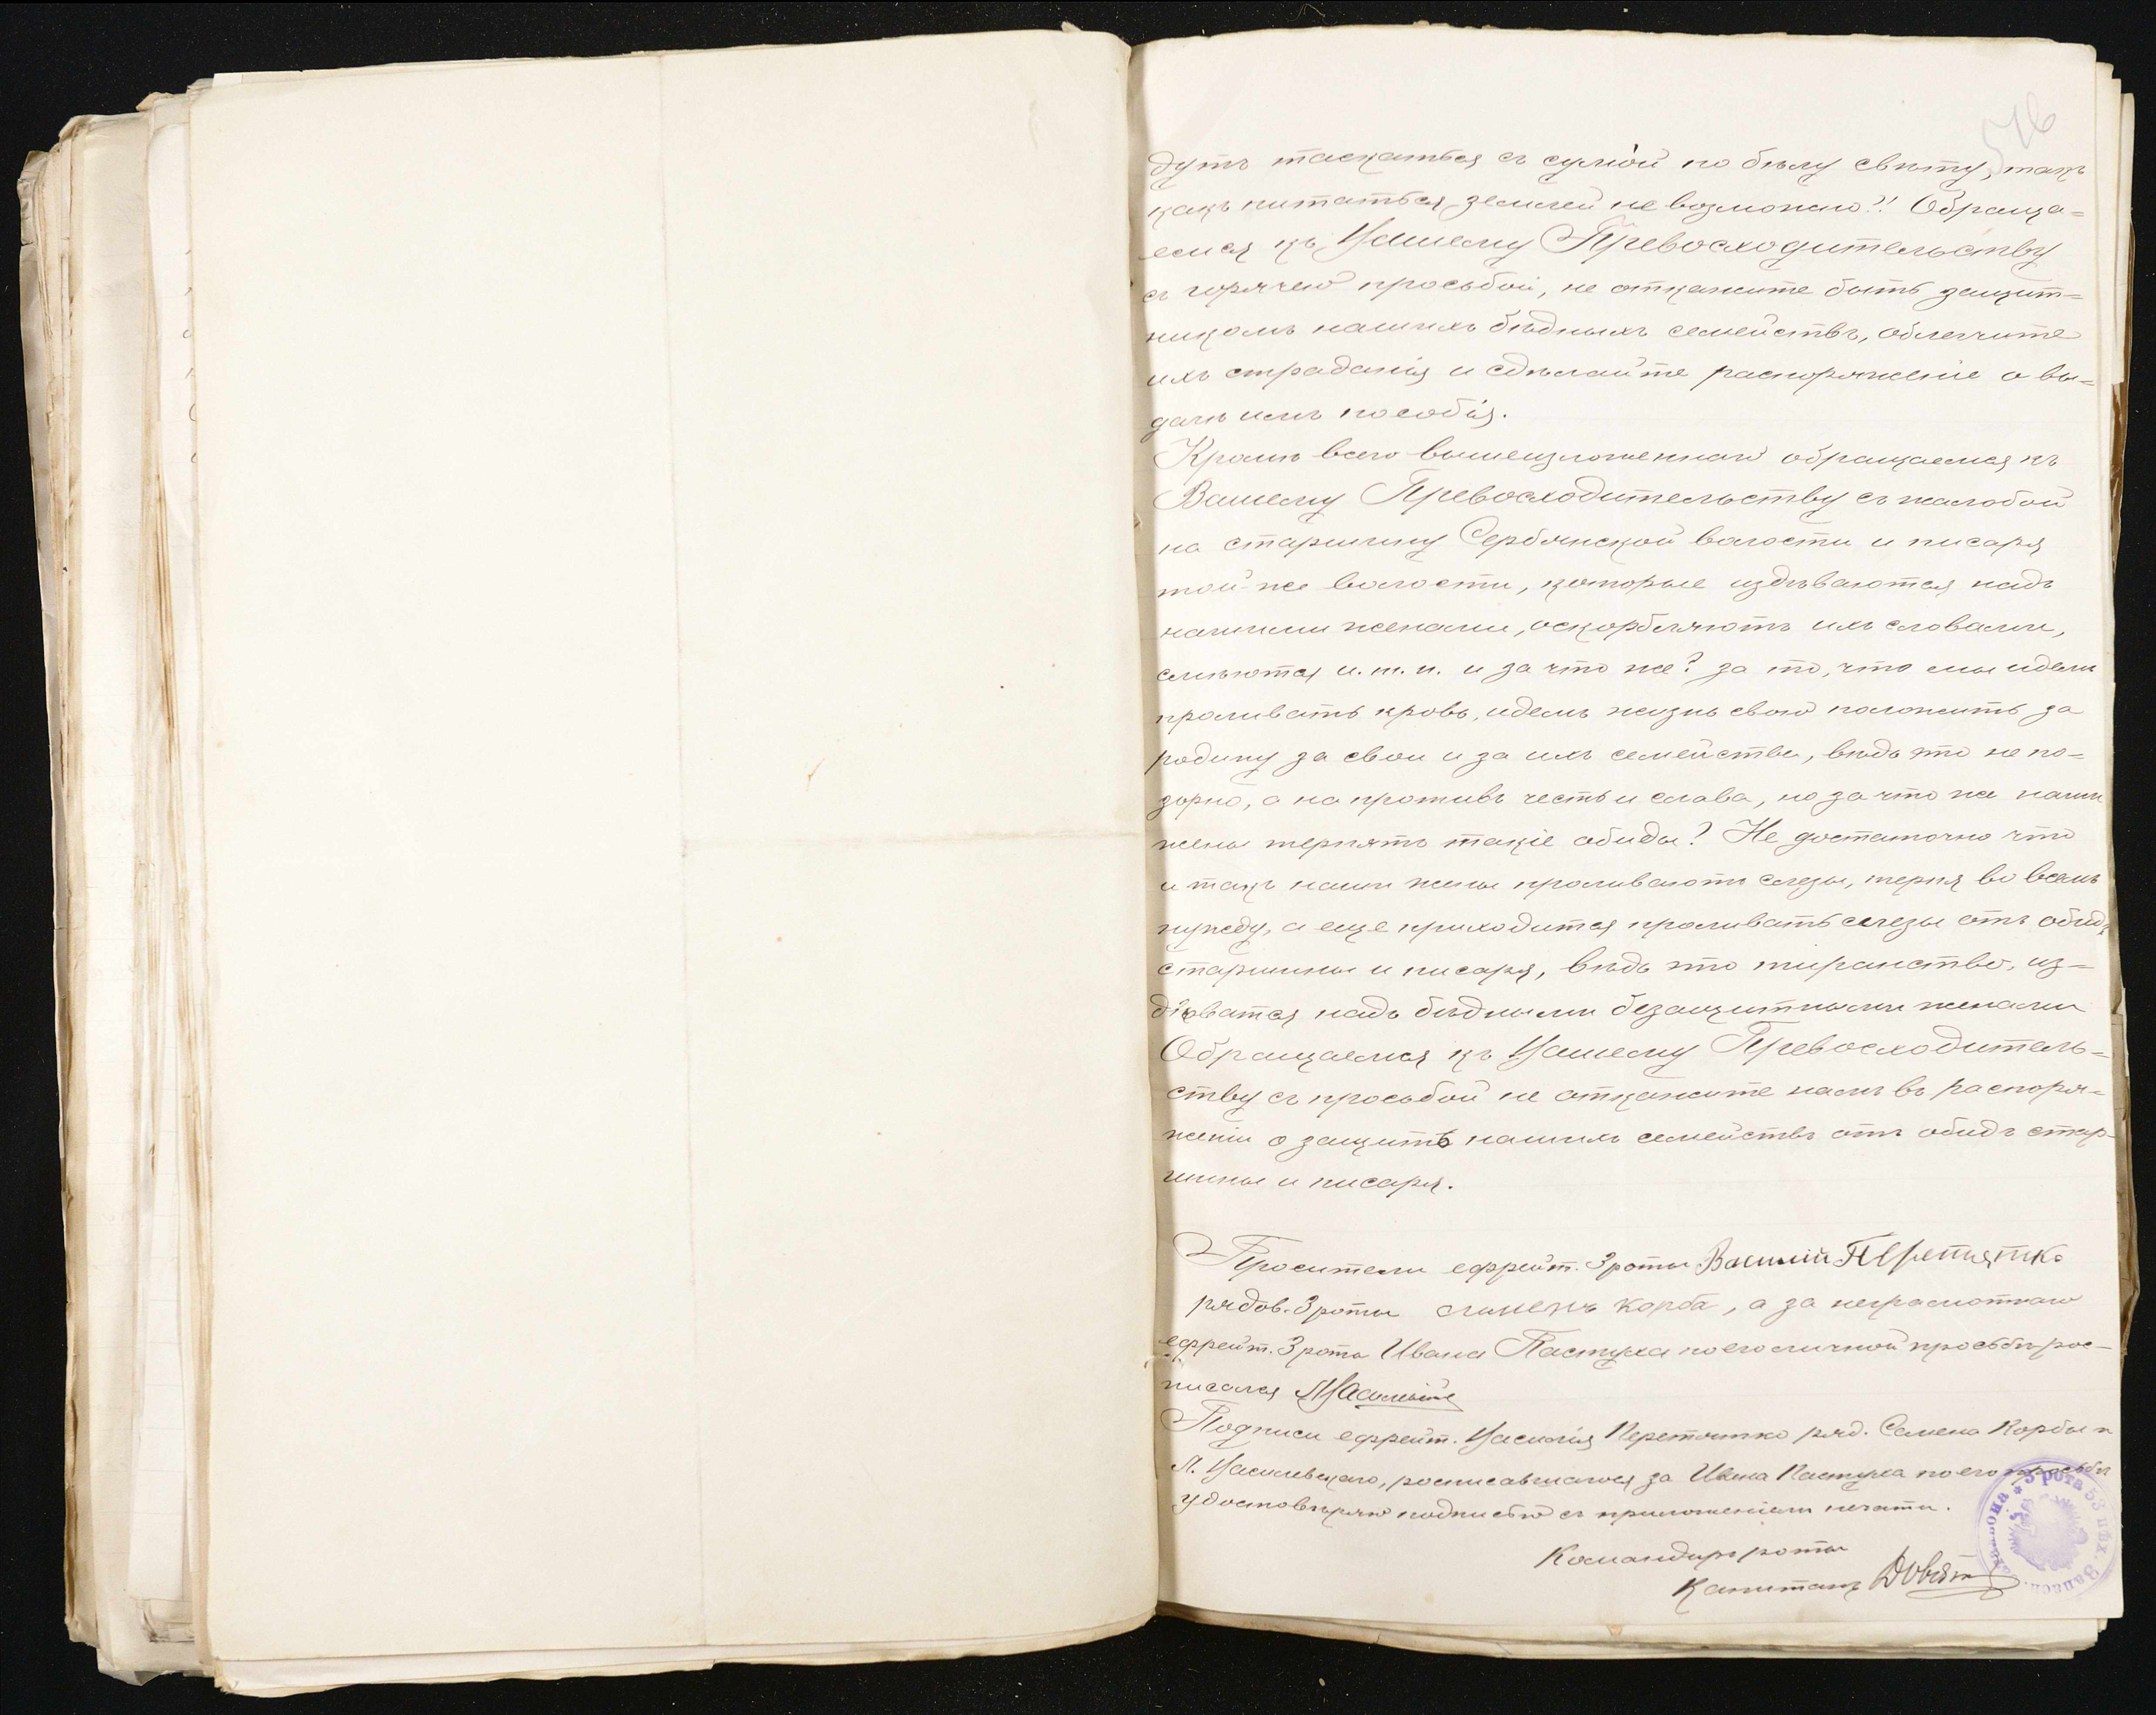 76
дутъ таскаться съ сумой по бѣлу свѣту, такъ
какъ питаться землей не возможно?! Обраща=
емся къ Вашему Превосходительству
съ горячею просьбой, не откажите быть защит=
никомъ нашихъ бѣдныхъ семействъ, облегчите
ихъ страданія и сдѣлайте распоряженіе о вы=
дачѣ имъ пособія.
Кромѣ всего вышеизложеннаго обращаемся къ
Вашему Превосходительству съ жалобой
на старшину Сербянской волости и писаря
той-же волости, которые издѣваются надъ
нашими женами, оскорбляютъ ихъ словами,
смѣются и. т. п. и за что же? за то, что мы идемъ
проливать кровь, идемъ жизнь свою положить за
родину за свои и за ихъ семейства, вѣдь это не по=
зорно, а на противъ честь и слава, но за что же наши
жены терпятъ такіе обиды? Не достаточно что
и такъ наши жены проливаютъ слезы, терпя во всемъ
нужду, а еще приходится проливать слезы отъ обидъ
старшины и писаря, вѣдь это тиранство, из=
дѣватся надъ бѣдными безащитными женами
Обращаемся къ Вашему Превосходитель=
ству съ просьбой не откажите намъ въ распоря=
женіи о защитѣ нашихъ семействъ отъ обидъ стар-
шины и писаря.
Просители ефрейт. 3 роты Василій Перетятко
рядов. 3 роты Сименъ Корба, а за неграмотнаго
ефрейт. 3 роты Ивана Пастуха по его личной просьбѣ рос-
писался
Подписи ефрейт. Василія Перетятко ряд. Семена Корбы и
Л. Василевскаго, росписавшагося за Ивана Пастуха по его просьбѣ
удостовѣряю подписью съ приложеніемъ печати.
Командиръ роты
Капитанъ
* 3 рота 53 пѣх. Запасн.